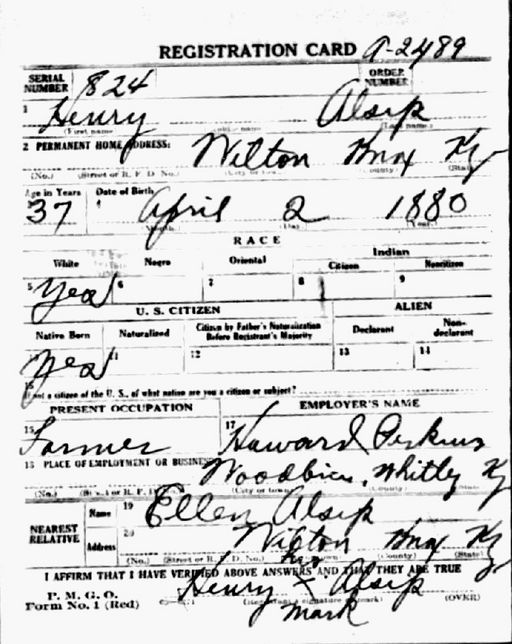 REGISTRATION CARD A-2489
SERIAL NUMBER 824 ORDER NUMBER
1 Henry Alsip
(First name) (Last name)
2 PERMANENT HOME ADDRESS: Wilton Knox Ky
(No.) (Street or R. F. D. No.) (City or town) (County) (State)
Age in Years Date of Birth
37 April 2 1880
(Month) (Day) (Year)
RACE
White Negro Oriental Indian
Citizen Noncitizen
5 Yes 6 7 8 9
U. S. CITIZEN ALIEN
Native Born Naturalized Citizen by Father's Naturalization Before Registrant's Majority Declarant Non-declarant
Yes 11 12 13 14
If not a citizen of the U. S., of what nation are you a citizen or subject?
PRESENT OCCUPATION EMPLOYER'S NAME
Farmer 17 Howard Perkins
18 PLACE OF EMPLOYMENT OR BUSINESS Whitley Ky
(No.) (Street or R. F. D. No.) (City or town) (County) (State)
NEAREST RELATIVE
Name 19 Ellen Alsip
Address 20 Wilton Knox Ky
(No.) (Street or R. F. D. No.) (City or town) (County) (State)
I AFFIRM THAT I HAVE VERIFIED ABOVE ANSWERS AND THAT THEY ARE TRUE
P. M. G. O.
Form No. 1 (Red)
his
Henry x Alsip
mark
(Registrant's signature or mark) (OVER)